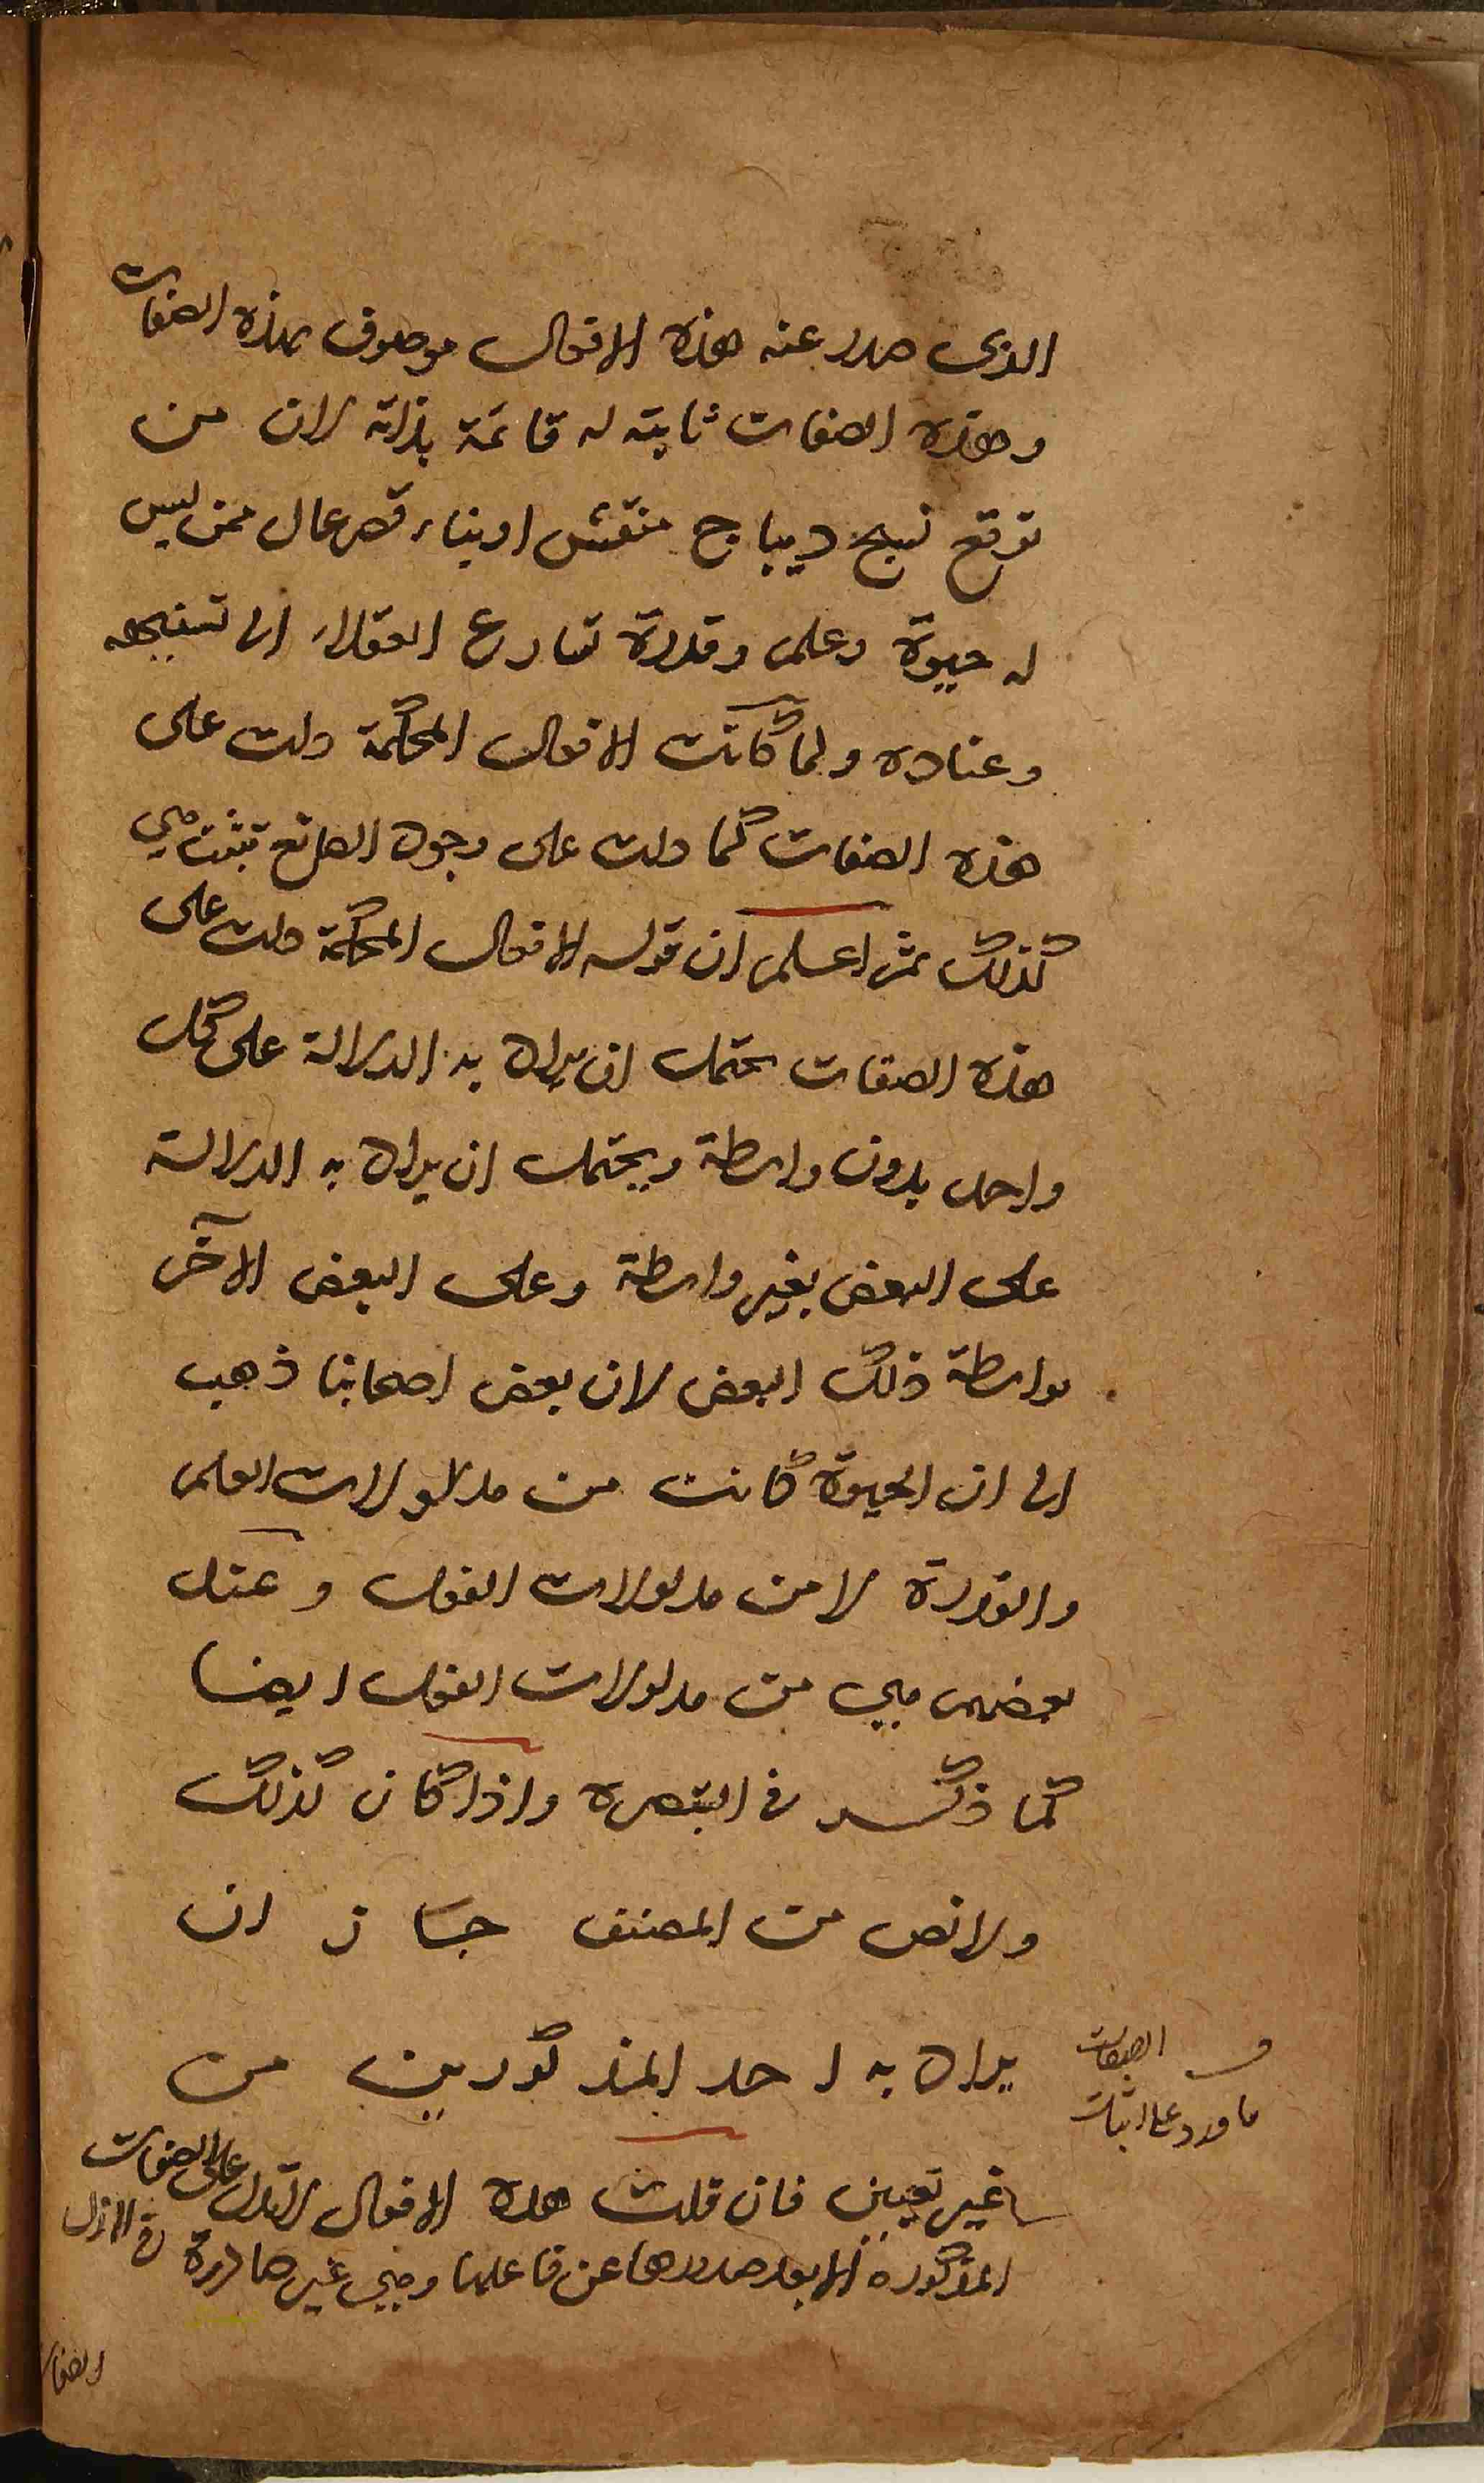 الذى صدر عنه هذه الافعال موصوف بهذه الصفات
وهذه الصفات ثابتة له قائمة بذاته لان من
توقع نسج ديباج منقش او بناء قصر عال ممن ليس
له حيوة وعلم وقدرة تسارع العقلاء الى تسفيهه
وعناده ولما كانت الافعال المحكمة دلت على
هذه الصفات كما دلت على وجود الصانع تثبت هي
كذلك ثم اعلم ان قوله الافعال المحكمة دلت على
هذه الصفات يحتمل ان يراد به الدلالة على كل
واحد بدون واسطة ويحتمل ان يراد به الدلالة
على البعض بغير واسطة وعلى البعض الآخر
بواسطة ذلك البعض لان بعض اصحابنا ذهب
الى ان الحيوة كانت من مدلولات العلم
والقدرة لا من مدلولات الفعل وعند
بعضهم هي من مدلولات الفعل ايضا
كما ذكر في التبصرة واذا كان كذلك
ولا نص من المصنف جاز ان
يراد به احد المذكورين من
غير تعيين فان قلت هذه الافعال لا تدل على الصفات
المذكورة الا بعد صدورها عن فاعلها وهي غير صادرة في الازل
الصفات
ما ورد على اثبات
الصفات